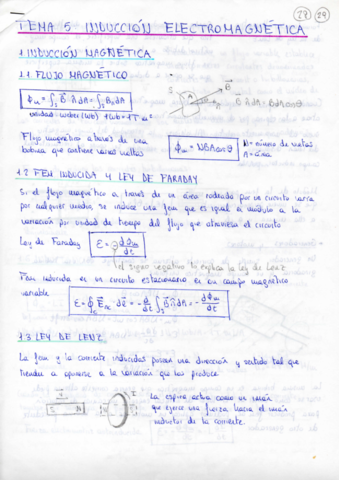 TEMA 5 INDUCCIÓN ELECTROMAGNÉTICA
1. INDUCCIÓN MAGNÉTICA
1.1 FLUJO MAGNÉTICO
ϕm = ∫s B⃗ · n̂ dA = ∫s Bn dA
S A B⃗ B⃗ n̂ dA = B dA cos θ
unidad weber (Wb) 1Wb = 1T·m²
Flujo magnético a través de una
bobina que contiene varias vueltas
ϕm = NBA cos θ
N = número de vueltas
A = área
1.2 FEM INDUCIDA Y LEY DE FARADAY
Si el flujo magnético a través de un área rodeada por un circuito varía
por cualquier medio, se induce una fem que es igual en módulo a la
variación por unidad de tiempo del flujo que atraviesa el circuito
Ley de Faraday ε = - dϕm/dt
el signo negativo lo explica la ley de Lenz
Fem inducida en un circuito estacionario en un campo magnético
variable ε = ∮c E⃗nc · dl⃗ = - d/dt ∫s B⃗ n̂ dA = - dϕm/dt
1.3 LEY DE LENZ
La fem y la corriente inducidas poseen una dirección y sentido tal que
tienden a oponerse a la variación que las produce.
I La espira actúa como un imán
que ejerce una fuerza hacia el imán
inductor de la corriente.